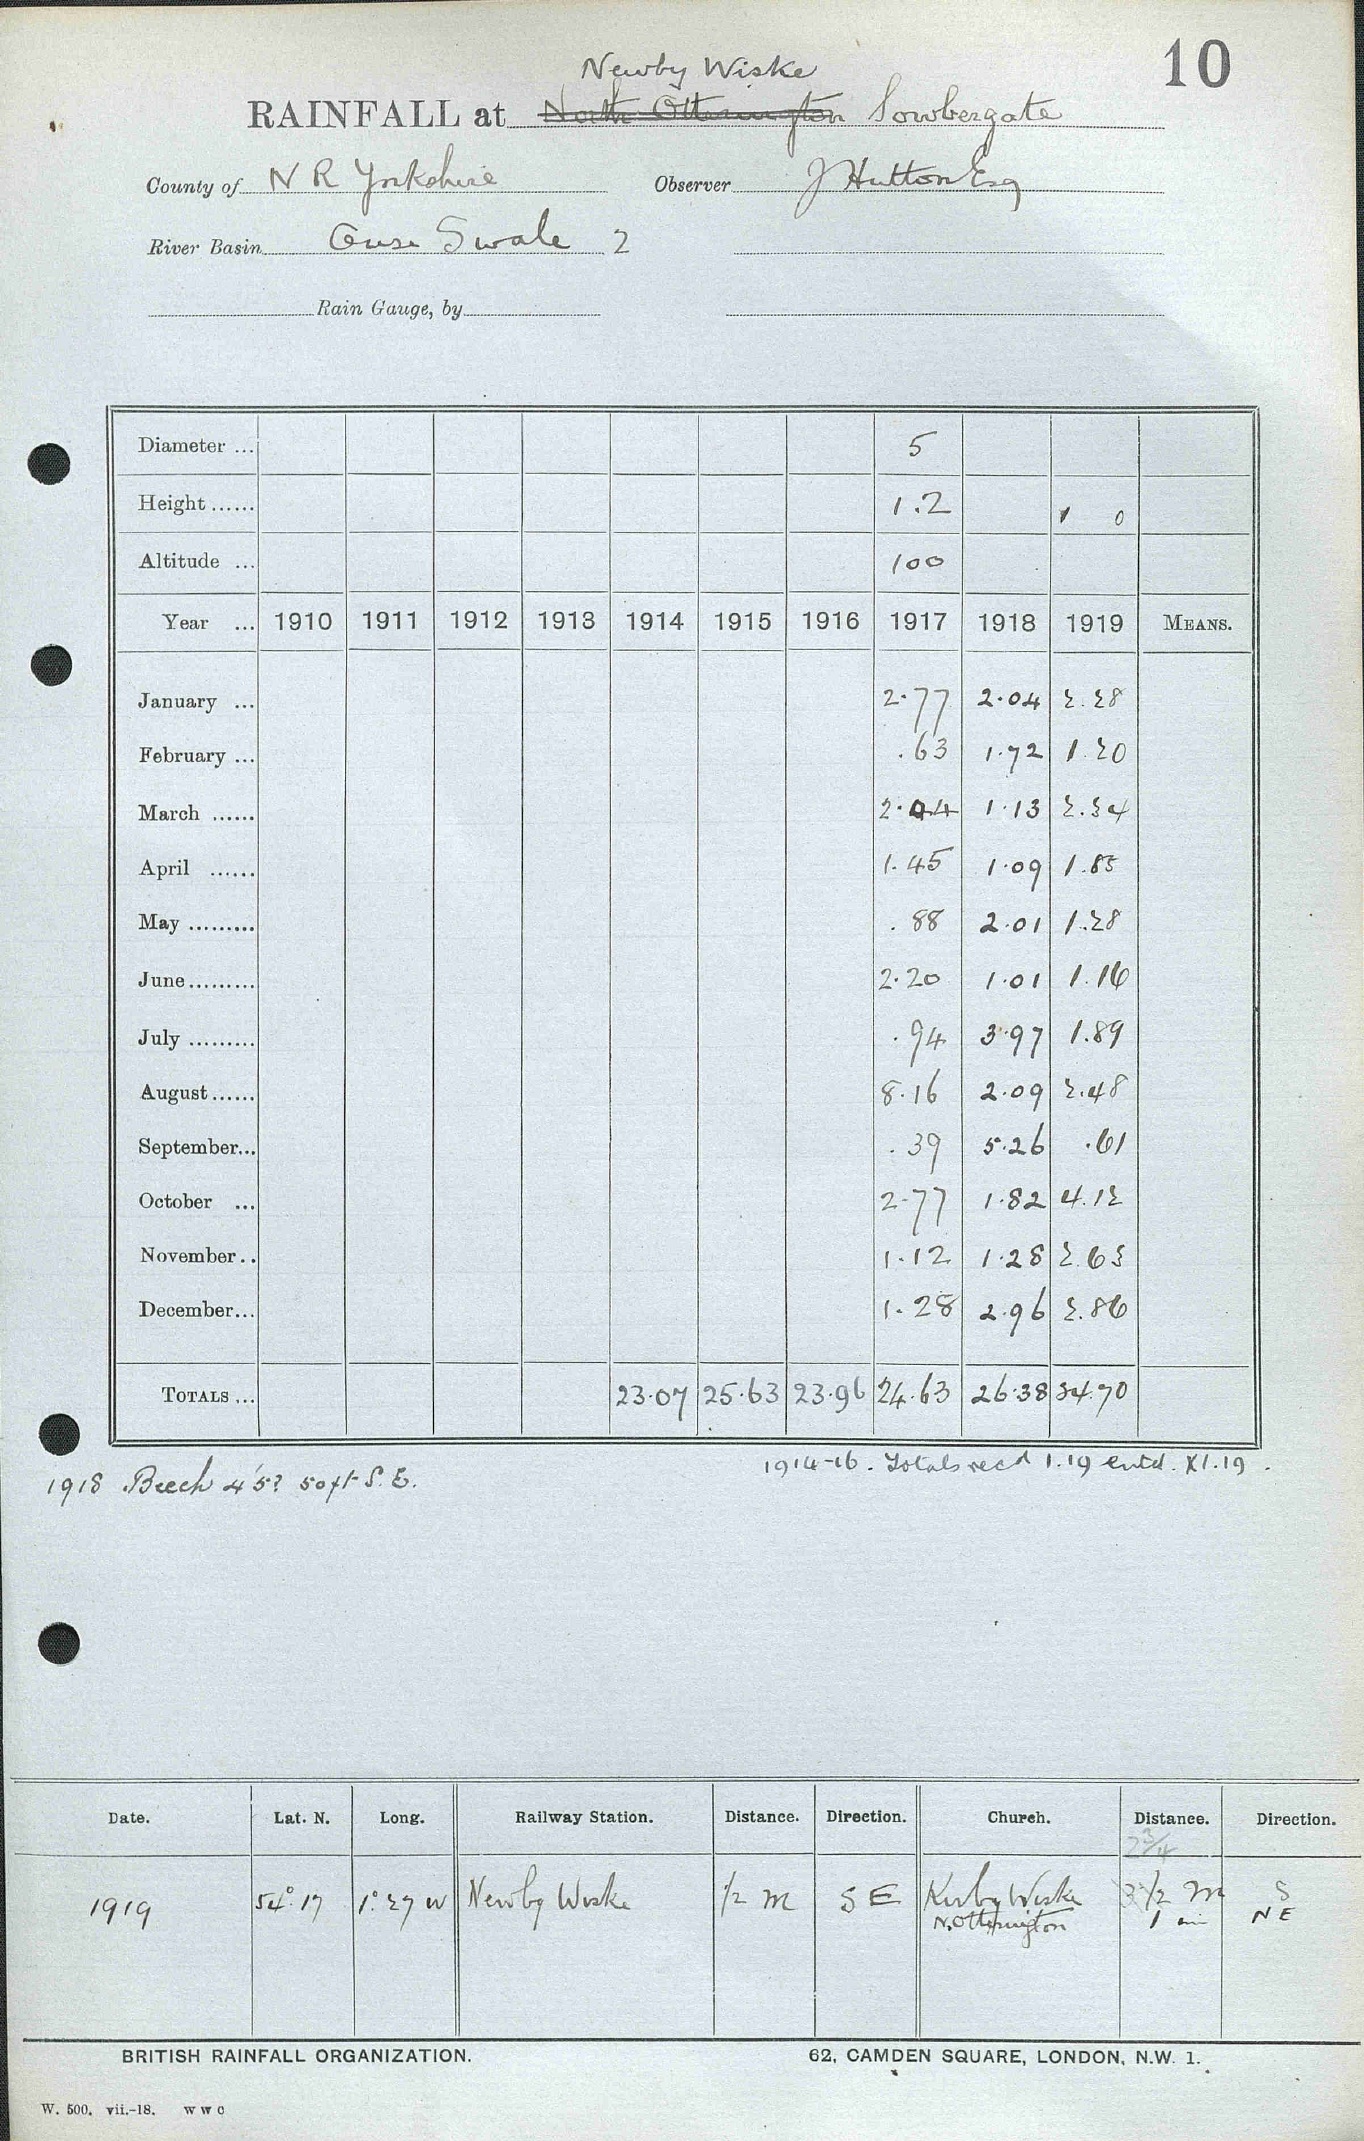 10
Newby Wiske
RAINFALL at North Otterington Sowbergate
County of N R Yorkshire Observer J Hutton Esq
River Basin Ouse Swale 2
Rain Gauge, by
Diameter ... 5
Height ...... 1.2 1 0
Altitude ... 100
Year ... 1910 1911 1912 1913 1914 1915 1916 1917 1918 1919 MEANS.
January ... 2.77 2.04 2.28
February ... .63 1.72 1.20
March ...... 2.04 1.13 2.34
April ...... 1.45 1.09 1.85
May ......... .88 2.01 1.28
June ......... 2.20 1.01 1.16
July ......... .94 3.97 1.89
August ...... 8.16 2.09 2.48
September... .39 5.26 .61
October ... 2.77 1.82 4.12
November.. 1.12 1.28 2.63
December... 1.28 2.96 2.86
TOTALS ... 23.07 25.63 23.96 24.63 26.38 24.70
1914-16. Totals recd 1.19 entd. XI.19.
1918 Beech 45? 50 ft S.E.
Date. Lat. N. Long. Railway Station. Distance. Direction. Church. Distance. Direction.
2 3/4
1919 54° 17 1° 27 W Newby Wiske 1/2 m S E Kirby Wiske 3 1/2 m S
N. Otterington 1 mi N E
BRITISH RAINFALL ORGANIZATION. 62, CAMDEN SQUARE, LONDON, N.W. 1.
W. 500. vii.-18. W W C